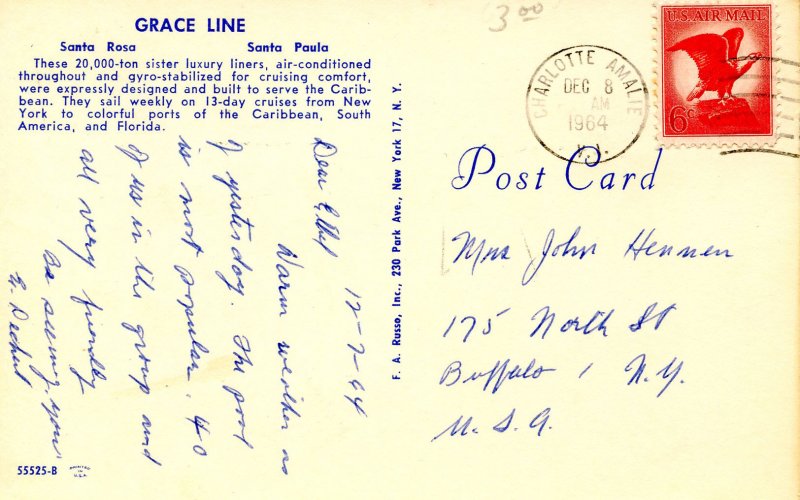 GRACE LINE
Santa Rosa Santa Paula
These 20,000-ton sister luxury liners, air-conditioned
throughout and gyro-stabilized for cruising comfort,
were expressly designed and built to serve the Carib-
bean. They sail weekly on 13-day cruises from New
York to colorful ports of the Caribbean, South
America, and Florida.
12-7-64
Dear Ethel
Warm weather as
of yesterday. The pool
is most popular. 40
of us in the group and
all very friendly
Be seeing you
G. Dechert
55525-B
PRINTED
IN
U.S.A.
F. A. Russo, Inc., 230 Park Ave., New York 17, N. Y.
3.00
CHARLOTTE AMALIE
DEC 8
AM
1964
V.I.
U.S. AIR MAIL
6c
Post Card
Mrs John Hennen
175 North St
Buffalo, N.Y.
U.S.A.